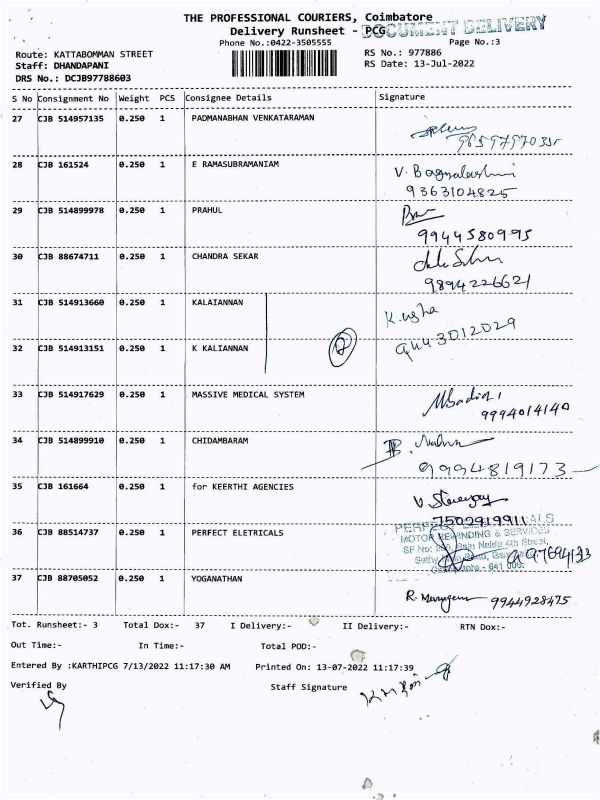 THE PROFESSIONAL COURIERS, Coimbatore
Delivery Runsheet - PCG DOCUMENT DELIVERY
Phone No.:0422-3505555 Page No.:3
Route: KATTABOMMAN STREET RS No.: 977886
Staff: DHANDAPANI RS Date: 13-Jul-2022
DRS No.: DCJB97788603
S No Consignment No Weight PCS Consignee Details Signature
27 CJB 514957135 0.250 1 PADMANABHAN VENKATARAMAN
28 CJB 161524 0.250 1 E RAMASUBRAMANIAM V. Bagyalakshmi
9363104825
29 CJB 514899978 0.250 1 PRAHUL
9944580995
30 CJB 88674711 0.250 1 CHANDRA SEKAR
9894226621
31 CJB 514913660 0.250 1 KALAIANNAN K. usha
9443012029
32 CJB 514913151 0.250 1 K KALIANNAN 2
33 CJB 514917629 0.250 1 MASSIVE MEDICAL SYSTEM
9994014140
34 CJB 514899910 0.250 1 CHIDAMBARAM
9994819173
35 CJB 161664 0.250 1 for KEERTHI AGENCIES
7502919911
36 CJB 88514737 0.250 1 PERFECT ELETRICALS
MOTOR REWINDING & SERVICES
37 CJB 88705052 0.250 1 YOGANATHAN R. Murugan 9944928475
Tot. Runsheet:- 3 Total Dox:- 37 I Delivery:- II Delivery:- RTN Dox:-
Out Time:- In Time:- Total POD:-
Entered By :KARTHIPCG 7/13/2022 11:17:30 AM Printed On: 13-07-2022 11:17:39
Verified By Staff Signature